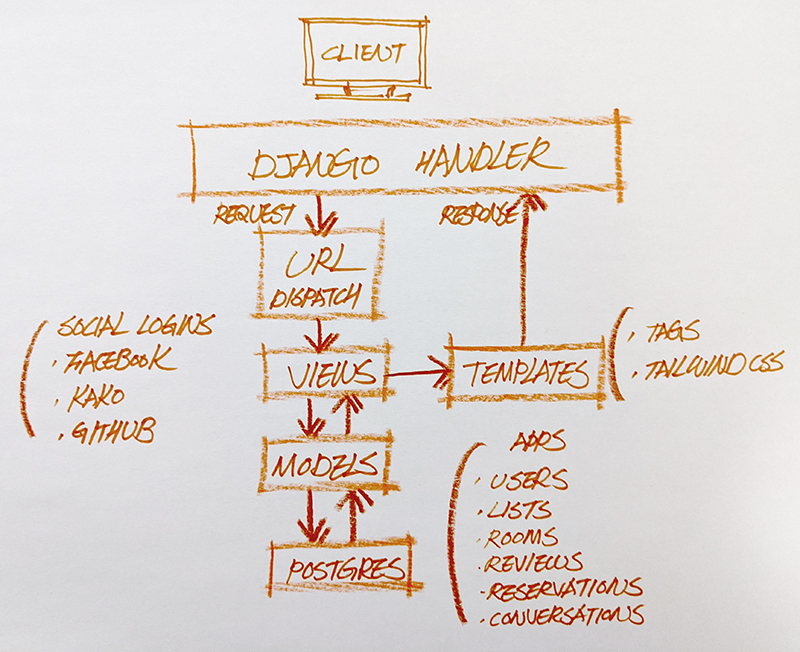 CLIENT
DJANGO HANDLER
REQUEST
RESPONSE
URL
DISPATCH
SOCIAL LOGINS
· FACEBOOK
· KAKO
· GITHUB
VIEWS
TEMPLATES
· TAGS
· TAILWIND CSS
MODELS
POSTGRES
APPS
· USERS
· LISTS
· ROOMS
· REVIEWS
· RESERVATIONS
· CONVERSATIONS